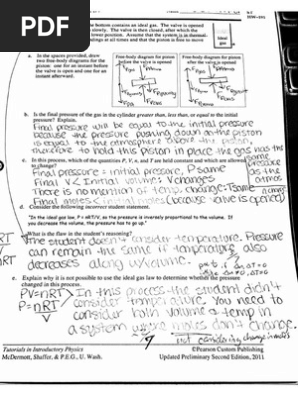 PDF
bottom contains an ideal gas. The valve is opened
slowly. The valve is then closed, after which the
lower position. Assume that the system is in thermal
surroundings at all times and that the piston is free to move
a. In the spaces provided, draw
two free-body diagrams for the
piston: one for an instant before
the valve is open and one for an
instant afterward.
Free-body diagram for piston
before the valve is opened
Free-body diagram for piston
after the valve is opened
b. Is the final pressure of the gas in the cylinder greater than, less than, or equal to the initial
pressure? Explain.
Final pressure will be equal to the initial pressure
because the pressure pushing down on the piston
is equal to the atmosphere above the piston,
therefore to hold this piston in place the gas has the
same
pressure
as the
atmos.
c. In this process, which of the quantities P, V, n, and T are held constant and which are allowed
to change?
Final pressure = initial pressure, P same
Final V < Initial volume: V changes
There is no mention of temp. change: T same
Final moles < initial moles (because valve is opened)
n changes
d. Consider the following incorrect student statement.
"In the ideal gas law, P = nRT/V, so the pressure is inversely proportional to the volume. If you
decrease the volume, the pressure has to go up."
What is the flaw in the student's reasoning?
The student doesn't consider temperature. Pressure
can remain the same if temperature also
decreases along w/ volume.
e. Explain why it is not possible to use the ideal gas law to determine whether the pressure
changed in this process.
PV=nRT
P=nRT
V
In this process the student didn't
consider temperature. You need to
consider both volume & temp in
a system where moles don't change.
not considering change in moles
Tutorials in Introductory Physics
McDermott, Shaffer, & P.E.G., U. Wash.
©Pearson Custom Publishing
Updated Preliminary Second Edition, 2011